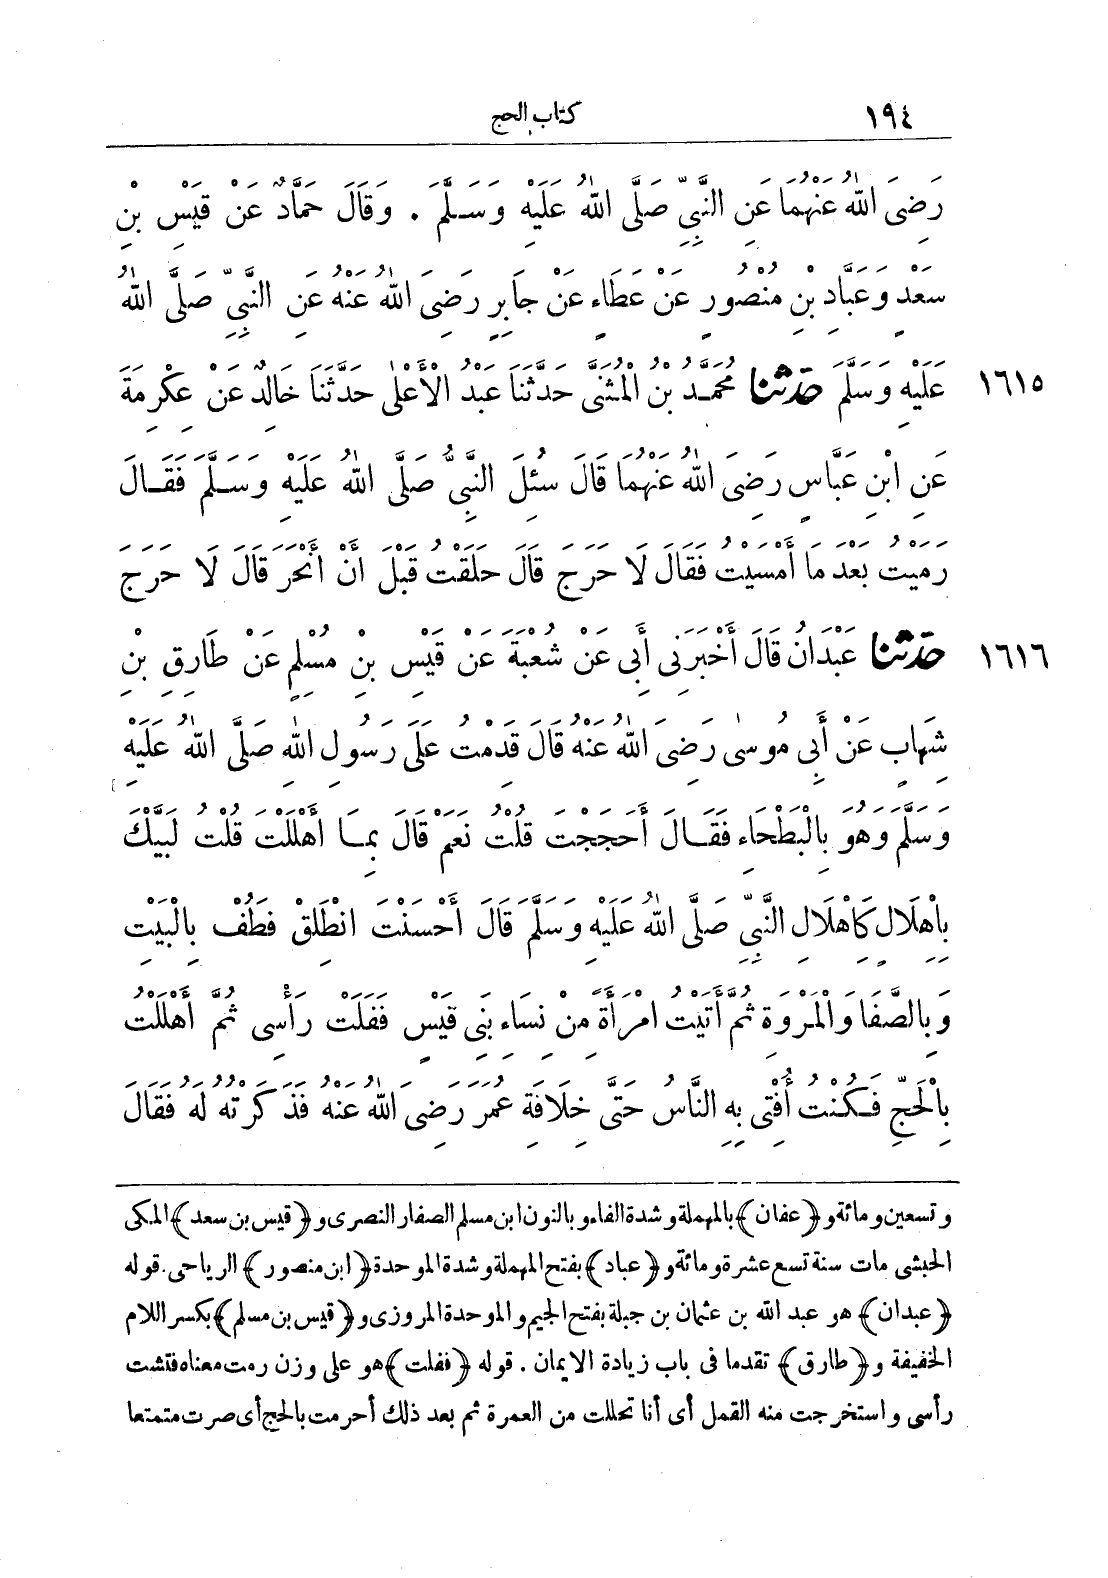 ١٩٤
كتاب الحج
رَضِيَ اللهُ عَنْهُمَا عَنِ النَّبِيِّ صَلَّى اللهُ عَلَيْهِ وَسَلَّمَ . وَقَالَ حَمَّادٌ عَنْ قَيْسِ بْنِ
سَعْدٍ وَعَبَّادِ بْنِ مَنْصُورٍ عَنْ عَطَاءٍ عَنْ جَابِرٍ رَضِيَ اللهُ عَنْهُ عَنِ النَّبِيِّ صَلَّى اللهُ
عَلَيْهِ وَسَلَّمَ حَدَّثَنَا مُحَمَّدُ بْنُ الْمُثَنَّى حَدَّثَنَا عَبْدُ الْأَعْلَى حَدَّثَنَا خَالِدٌ عَنْ عِكْرِمَةَ ١٦١٥
عَنِ ابْنِ عَبَّاسٍ رَضِيَ اللهُ عَنْهُمَا قَالَ سُئِلَ النَّبِيُّ صَلَّى اللهُ عَلَيْهِ وَسَلَّمَ فَقَالَ
رَمَيْتُ بَعْدَ مَا أَمْسَيْتُ فَقَالَ لَا حَرَجَ قَالَ حَلَقْتُ قَبْلَ أَنْ أَنْحَرَ قَالَ لَا حَرَجَ
حَدَّثَنَا عَبْدَانُ قَالَ أَخْبَرَنِي أَبِي عَنْ شُعْبَةَ عَنْ قَيْسِ بْنِ مُسْلِمٍ عَنْ طَارِقِ بْنِ ١٦١٦
شِهَابٍ عَنْ أَبِي مُوسَى رَضِيَ اللهُ عَنْهُ قَالَ قَدِمْتُ عَلَى رَسُولِ اللهِ صَلَّى اللهُ عَلَيْهِ
وَسَلَّمَ وَهُوَ بِالْبَطْحَاءِ فَقَالَ أَحَجَجْتَ قُلْتُ نَعَمْ قَالَ بِمَا أَهْلَلْتَ قُلْتُ لَبَّيْكَ
بِإِهْلَالٍ كَإِهْلَالِ النَّبِيِّ صَلَّى اللهُ عَلَيْهِ وَسَلَّمَ قَالَ أَحْسَنْتَ انْطَلِقْ فَطُفْ بِالْبَيْتِ
وَبِالصَّفَا وَالْمَرْوَةِ ثُمَّ أَتَيْتُ امْرَأَةً مِنْ نِسَاءِ بَنِي قَيْسٍ فَفَلَتْ رَأْسِي ثُمَّ أَهْلَلْتُ
بِالْحَجِّ فَكُنْتُ أُفْتِي بِهِ النَّاسَ حَتَّى خِلَافَةِ عُمَرَ رَضِيَ اللهُ عَنْهُ فَذَكَرْتُهُ لَهُ فَقَالَ
وتسعين ومائة و(عفان) بالمهملة وشدة الفاء وبالنون ابن مسلم الصفار النصرى و(قيس بن سعد) المكى
الحبشى مات سنة تسع عشرة ومائة و(عباد) بفتح المهملة وشدة الموحدة (ابن منصور) الرياحى . قوله
(عبدان) هو عبد الله بن عثمان بن جبلة بفتح الجيم والموحدة المروزى و(قيس بن مسلم) بكسر اللام
الخفيفة و(طارق) تقدما فى باب زيادة الايمان . قوله (ففلت) هو على وزن رمت معناه فتشت
رأسى واستخرجت منه القمل أى أنا تحللت من العمرة ثم بعد ذلك أحرمت بالحج أى صرت متمتعا